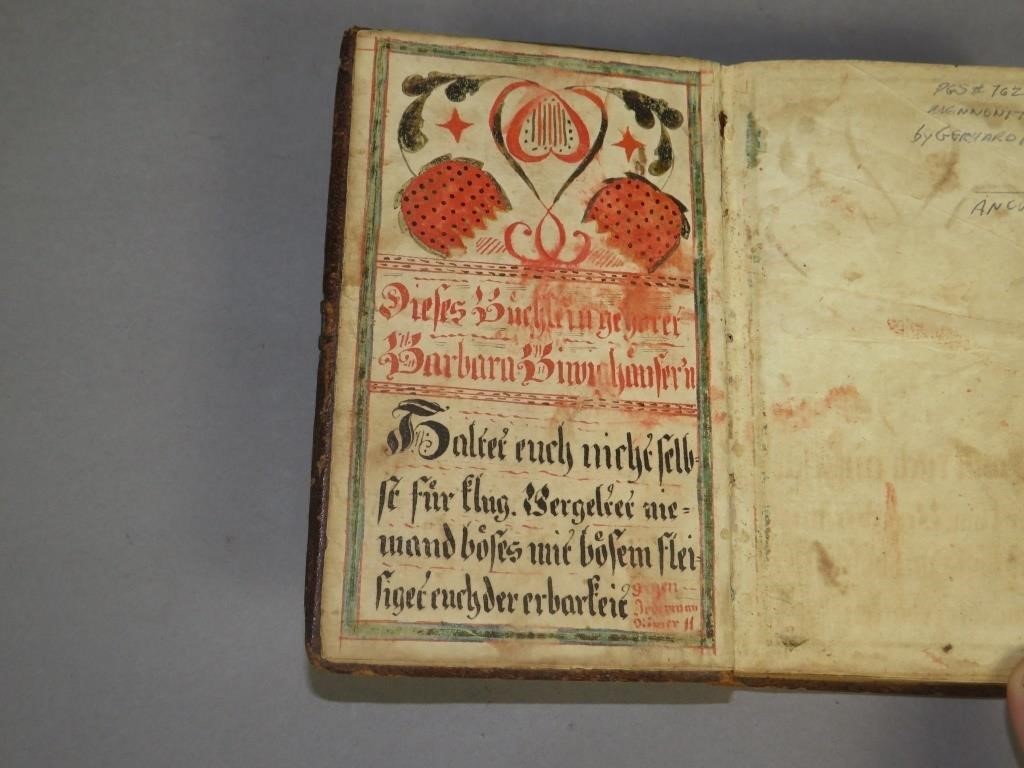 Dieses Büchlein gehöret
Barbara
Haltet euch nicht selb-
st für klug. Vergeltet nie-
mand böses mit bösem flei-
siget euch der erbarkeit
gegen
Jederman
Römer 11
PGS # 762
MENNONIT
by GERHARD